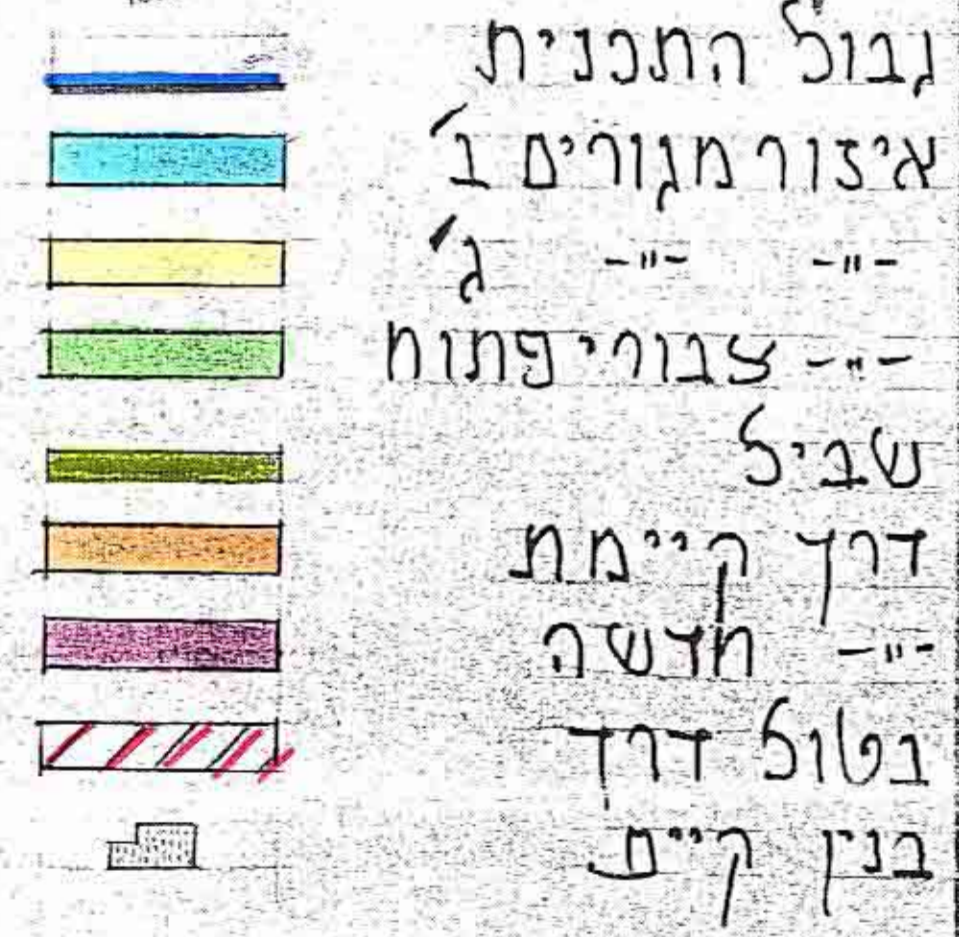 גבול התכנית
איזור מגורים ב'
-"- -"- ג'
-"- צבורי פתוח
שביל
דרך קיימת
-"- חדשה
בטול דרך
בנין קיים